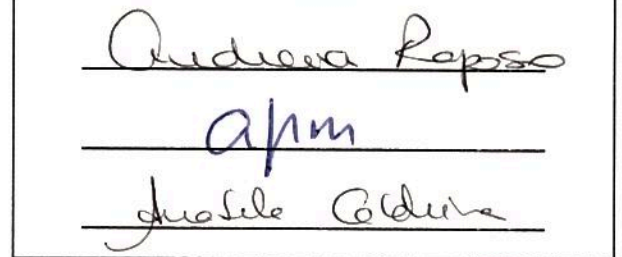 Andreia Raposo
apm
Anabela Caldeira